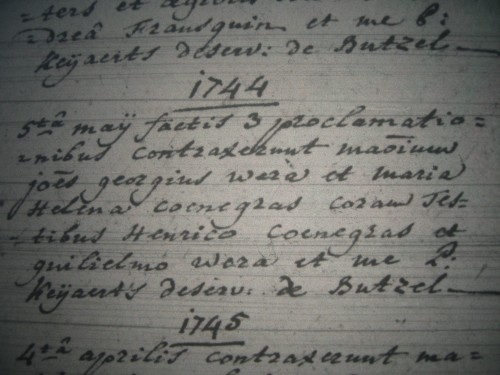 =ters et
=dreâ Fransquin et me P:
Keÿaerts deserv: de Butzel
1744
5tâ maÿ factis 3 proclamatio=
=nibus contraxerunt mãoium
joẽs georgius wera et maria
Helena Coenegras coram Tes=
=tibus Henrico Coenegras et
guilielmo wera et me P:
Keÿaerts deserv: de Butzel
1745
4tâ aprilis contraxerunt ma=